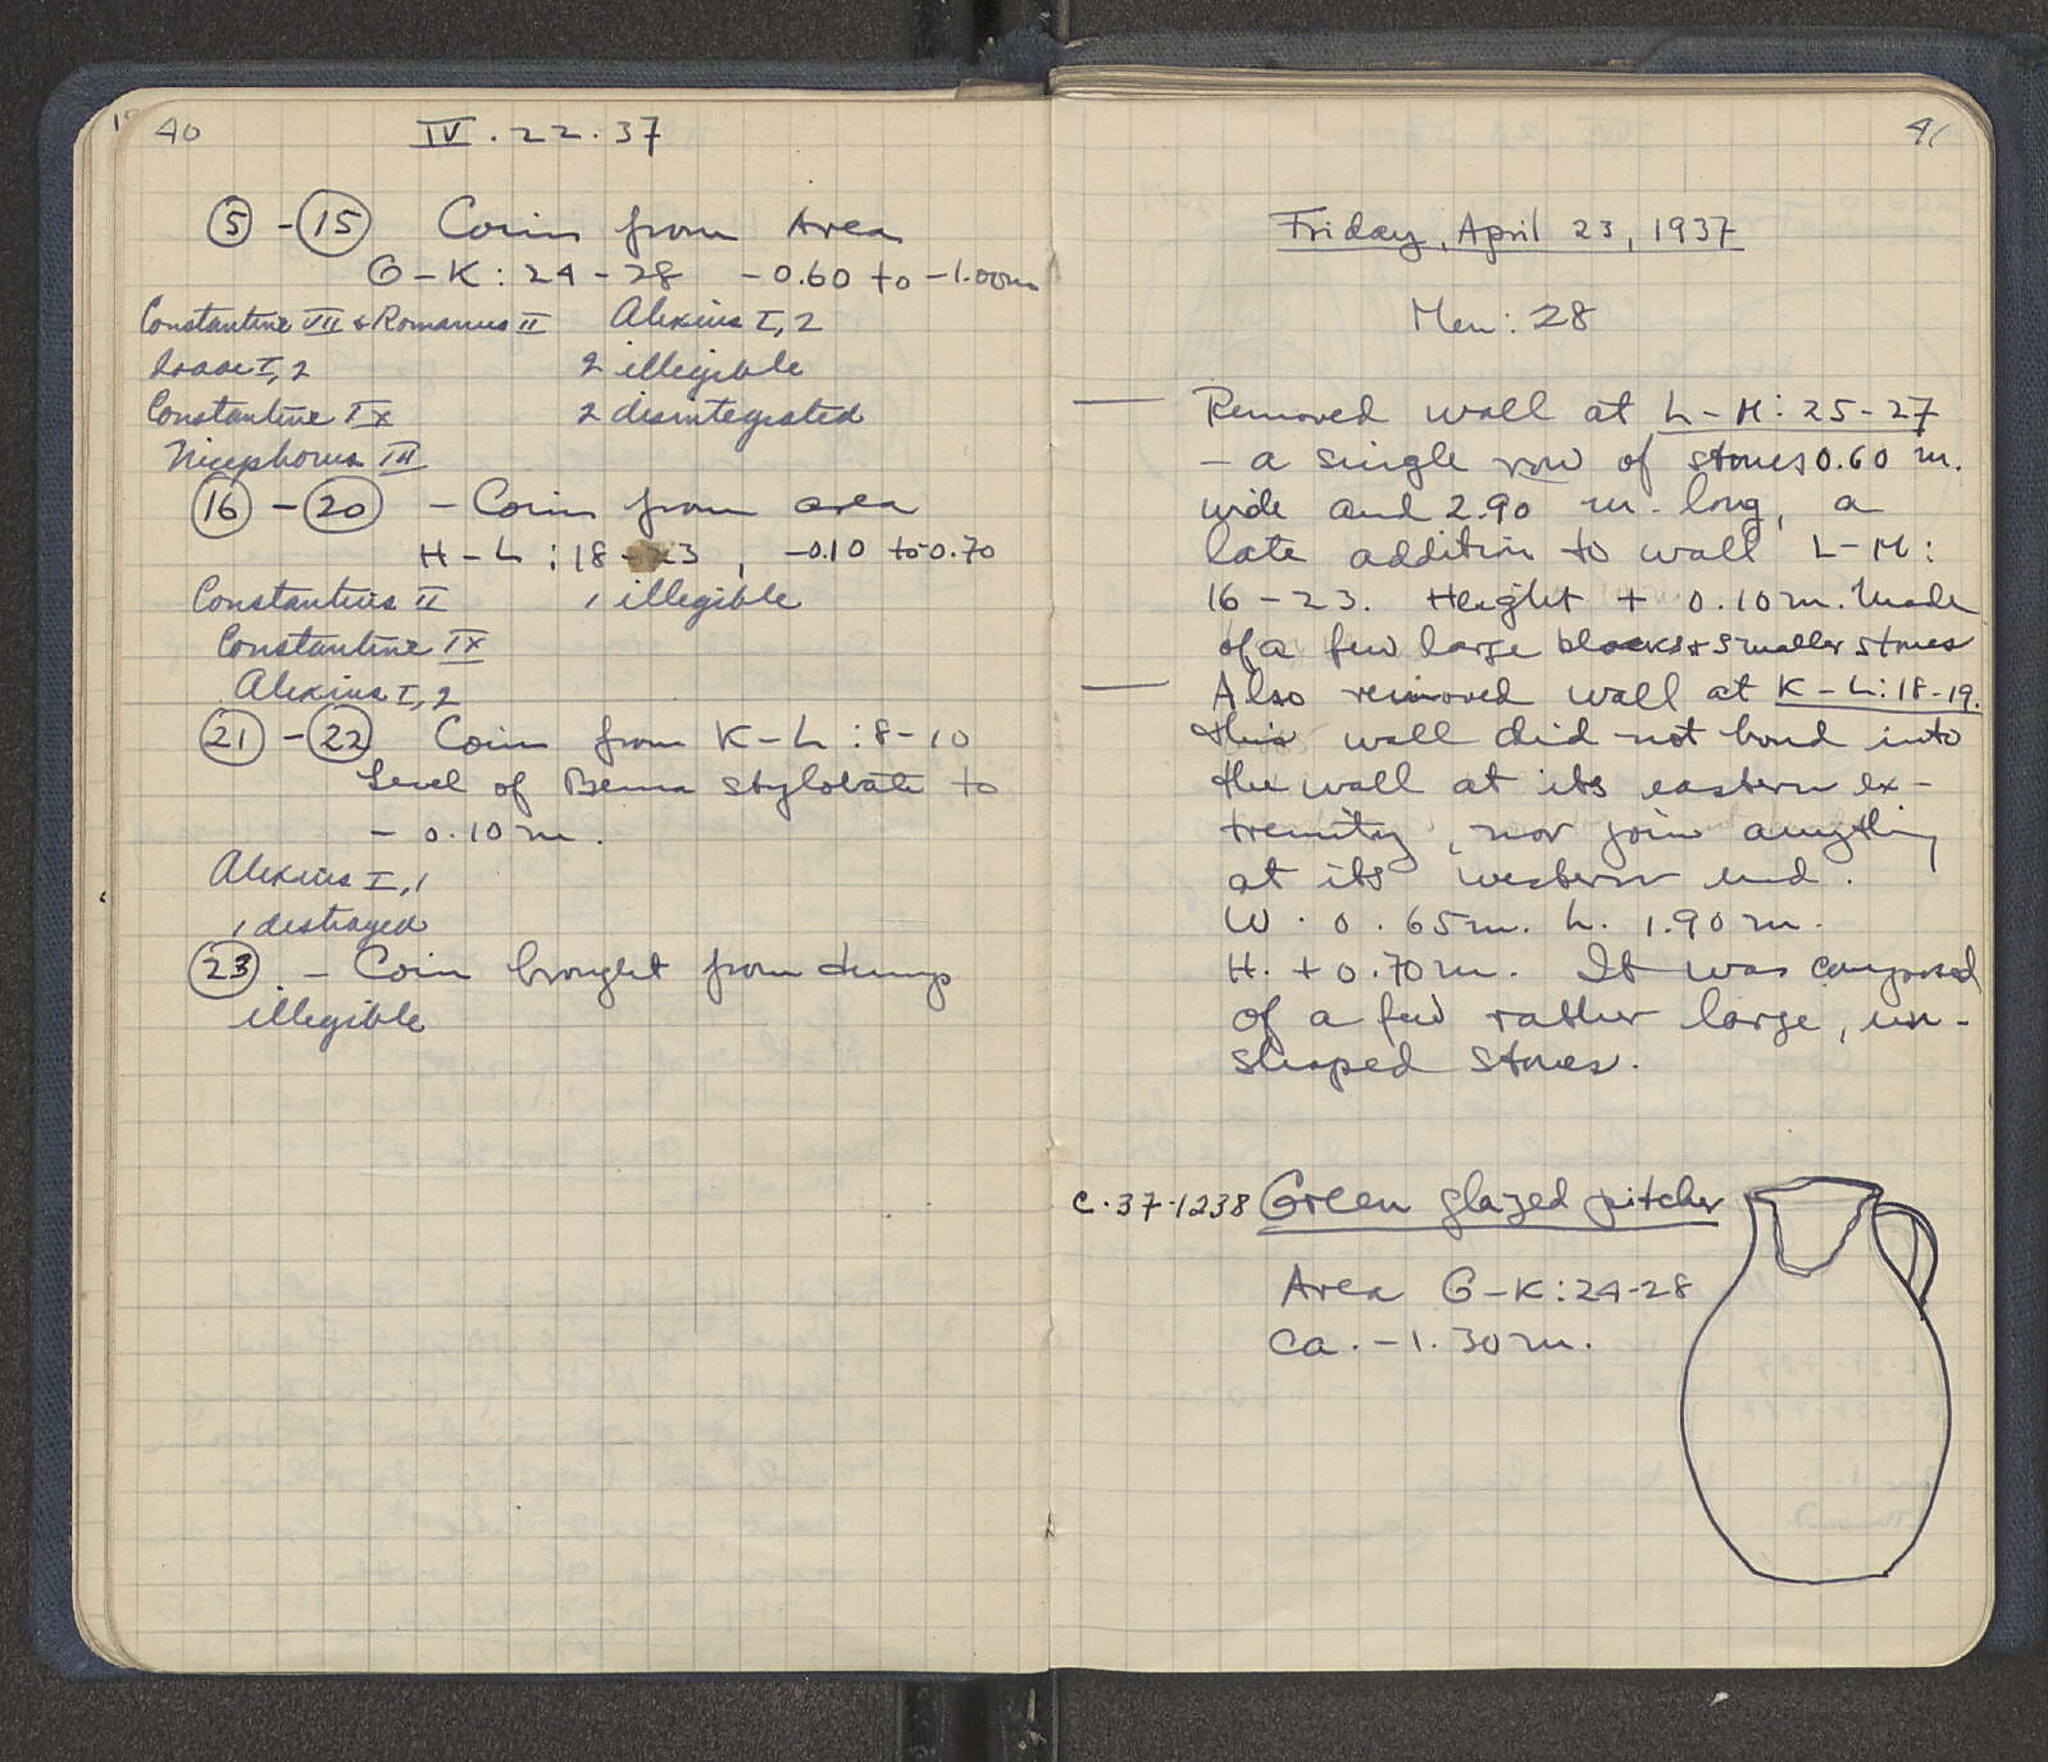 40
IV . 22 . 37
5 - 15 Coins from Area
G - K : 24 - 28 - 0.60 to - 1.00 m
Constantine VII & Romanus II Alexius I, 2
Isaac I, 2 2 illegible
Constantine IX 2 disintegrated
Nicephorus III
16 - 20 - Coins from area
H - L : 18 - 23 , -0.10 to -0.70
Constantius II 1 illegible
Constantine IX
Alexius I, 2
21 - 22 Coins from K - L : 8 - 10
Level of Bema stylobate to
- 0.10 m .
Alexius I, 1
1 destroyed
23 - Coin brought from dump
illegible
41
Friday, April 23, 1937
Men : 28
— Removed wall at L - M : 25 - 27
- a single row of stones 0.60 m.
wide and 2.90 m. long, a
late addition to wall L - M :
16 - 23. Height + 0.10 m. Made
of a few large blocks + smaller stones
— Also removed wall at K - L : 18 - 19.
this wall did not bond into
the wall at its eastern ex-
tremity, nor join anything
at its western end.
W. 0.65 m. L. 1.90 m.
H. + 0.70 m. It was composed
of a few rather large, un-
shaped stones.
C.37-1238 Green glazed pitcher
Area G - K : 24 - 28
Ca. - 1.30 m.